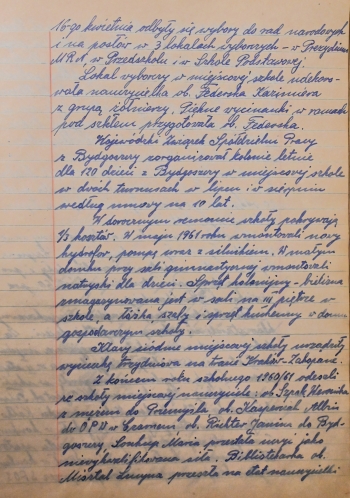 16-go kwietnia odbyły się wybory do rad narodowych
i na posłów w 3 lokalach wyborczych - w Prezydium
M.R.N, w Przedszkolu i w Szkole Podstawowej.
Lokal wyborczy w miejscowej szkole udekoro-
wała nauczycielka ob. Federska Kazimiera
z grupą żołnierzy. Piękne wycinanki w ramach
pod szkłem przygotowała K. Federska.
Wojewódzki Związek Spółdzielni Pracy
z Bydgoszczy zorganizował kolonie letnie
dla 120 dzieci z Bydgoszczy w miejscowej szkole
w dwóch turnusach w lipcu i w sierpniu
według umowy na 10 lat.
W dorocznym remoncie szkoły pokrywają
1/3 kosztów. W maju 1961 roku zmontowali nowy
hydrofor, pompę wraz z silnikiem. W małym
domku przy sali gimnastycznej zmontowali
natryski dla dzieci. Sprzęt kolonijny - bielizna
zmagazynowana jest w sali na III piętrze w
szkole, a łóżka szafy i sprzęt kuchenny w domu
gospodarczym szkoły.
Klasy siódme miejscowej szkoły urządziły
wycieczkę trzydniową na trasie Kraków - Zakopane.
Z końcem roku szkolnego 1960/61 odeszli
ze szkoły miejscowej nauczyciele: ob. Szpak Weronika
z mężem do Przemyśla, ob. Kasperczak Albin
do O.P.D w Czarnem, ob. Richter Janina do Byd-
goszczy, Maria przestała uczyć jako
niewykwalifikowana siła. Bibliotekarka ob.
Lucyna przeszła na etat nauczycielki